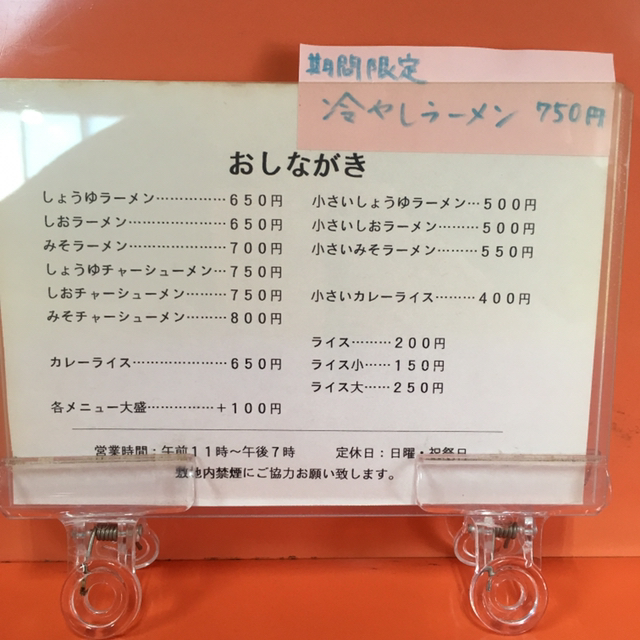 期間限定
冷やしラーメン 750円
おしながき
しょうゆラーメン……………650円
しおラーメン…………………650円
みそラーメン…………………700円
しょうゆチャーシューメン…750円
しおチャーシューメン………750円
みそチャーシューメン………800円
カレーライス…………………650円
各メニュー大盛……………＋100円
小さいしょうゆラーメン…500円
小さいしおラーメン………500円
小さいみそラーメン………550円
小さいカレーライス………400円
ライス………200円
ライス小……150円
ライス大……250円
営業時間：午前11時～午後7時 定休日：日曜・祝祭日
敷地内禁煙にご協力お願い致します。